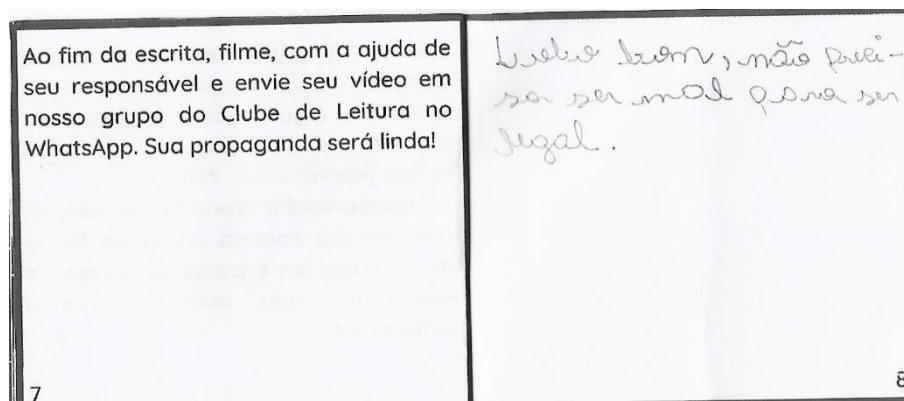 Ao fim da escrita, filme, com a ajuda de
seu responsável e envie seu vídeo em
nosso grupo do Clube de Leitura no
WhatsApp. Sua propaganda será linda!
7
Lobo bom, não preci-
sa ser mal para ser
legal.
8